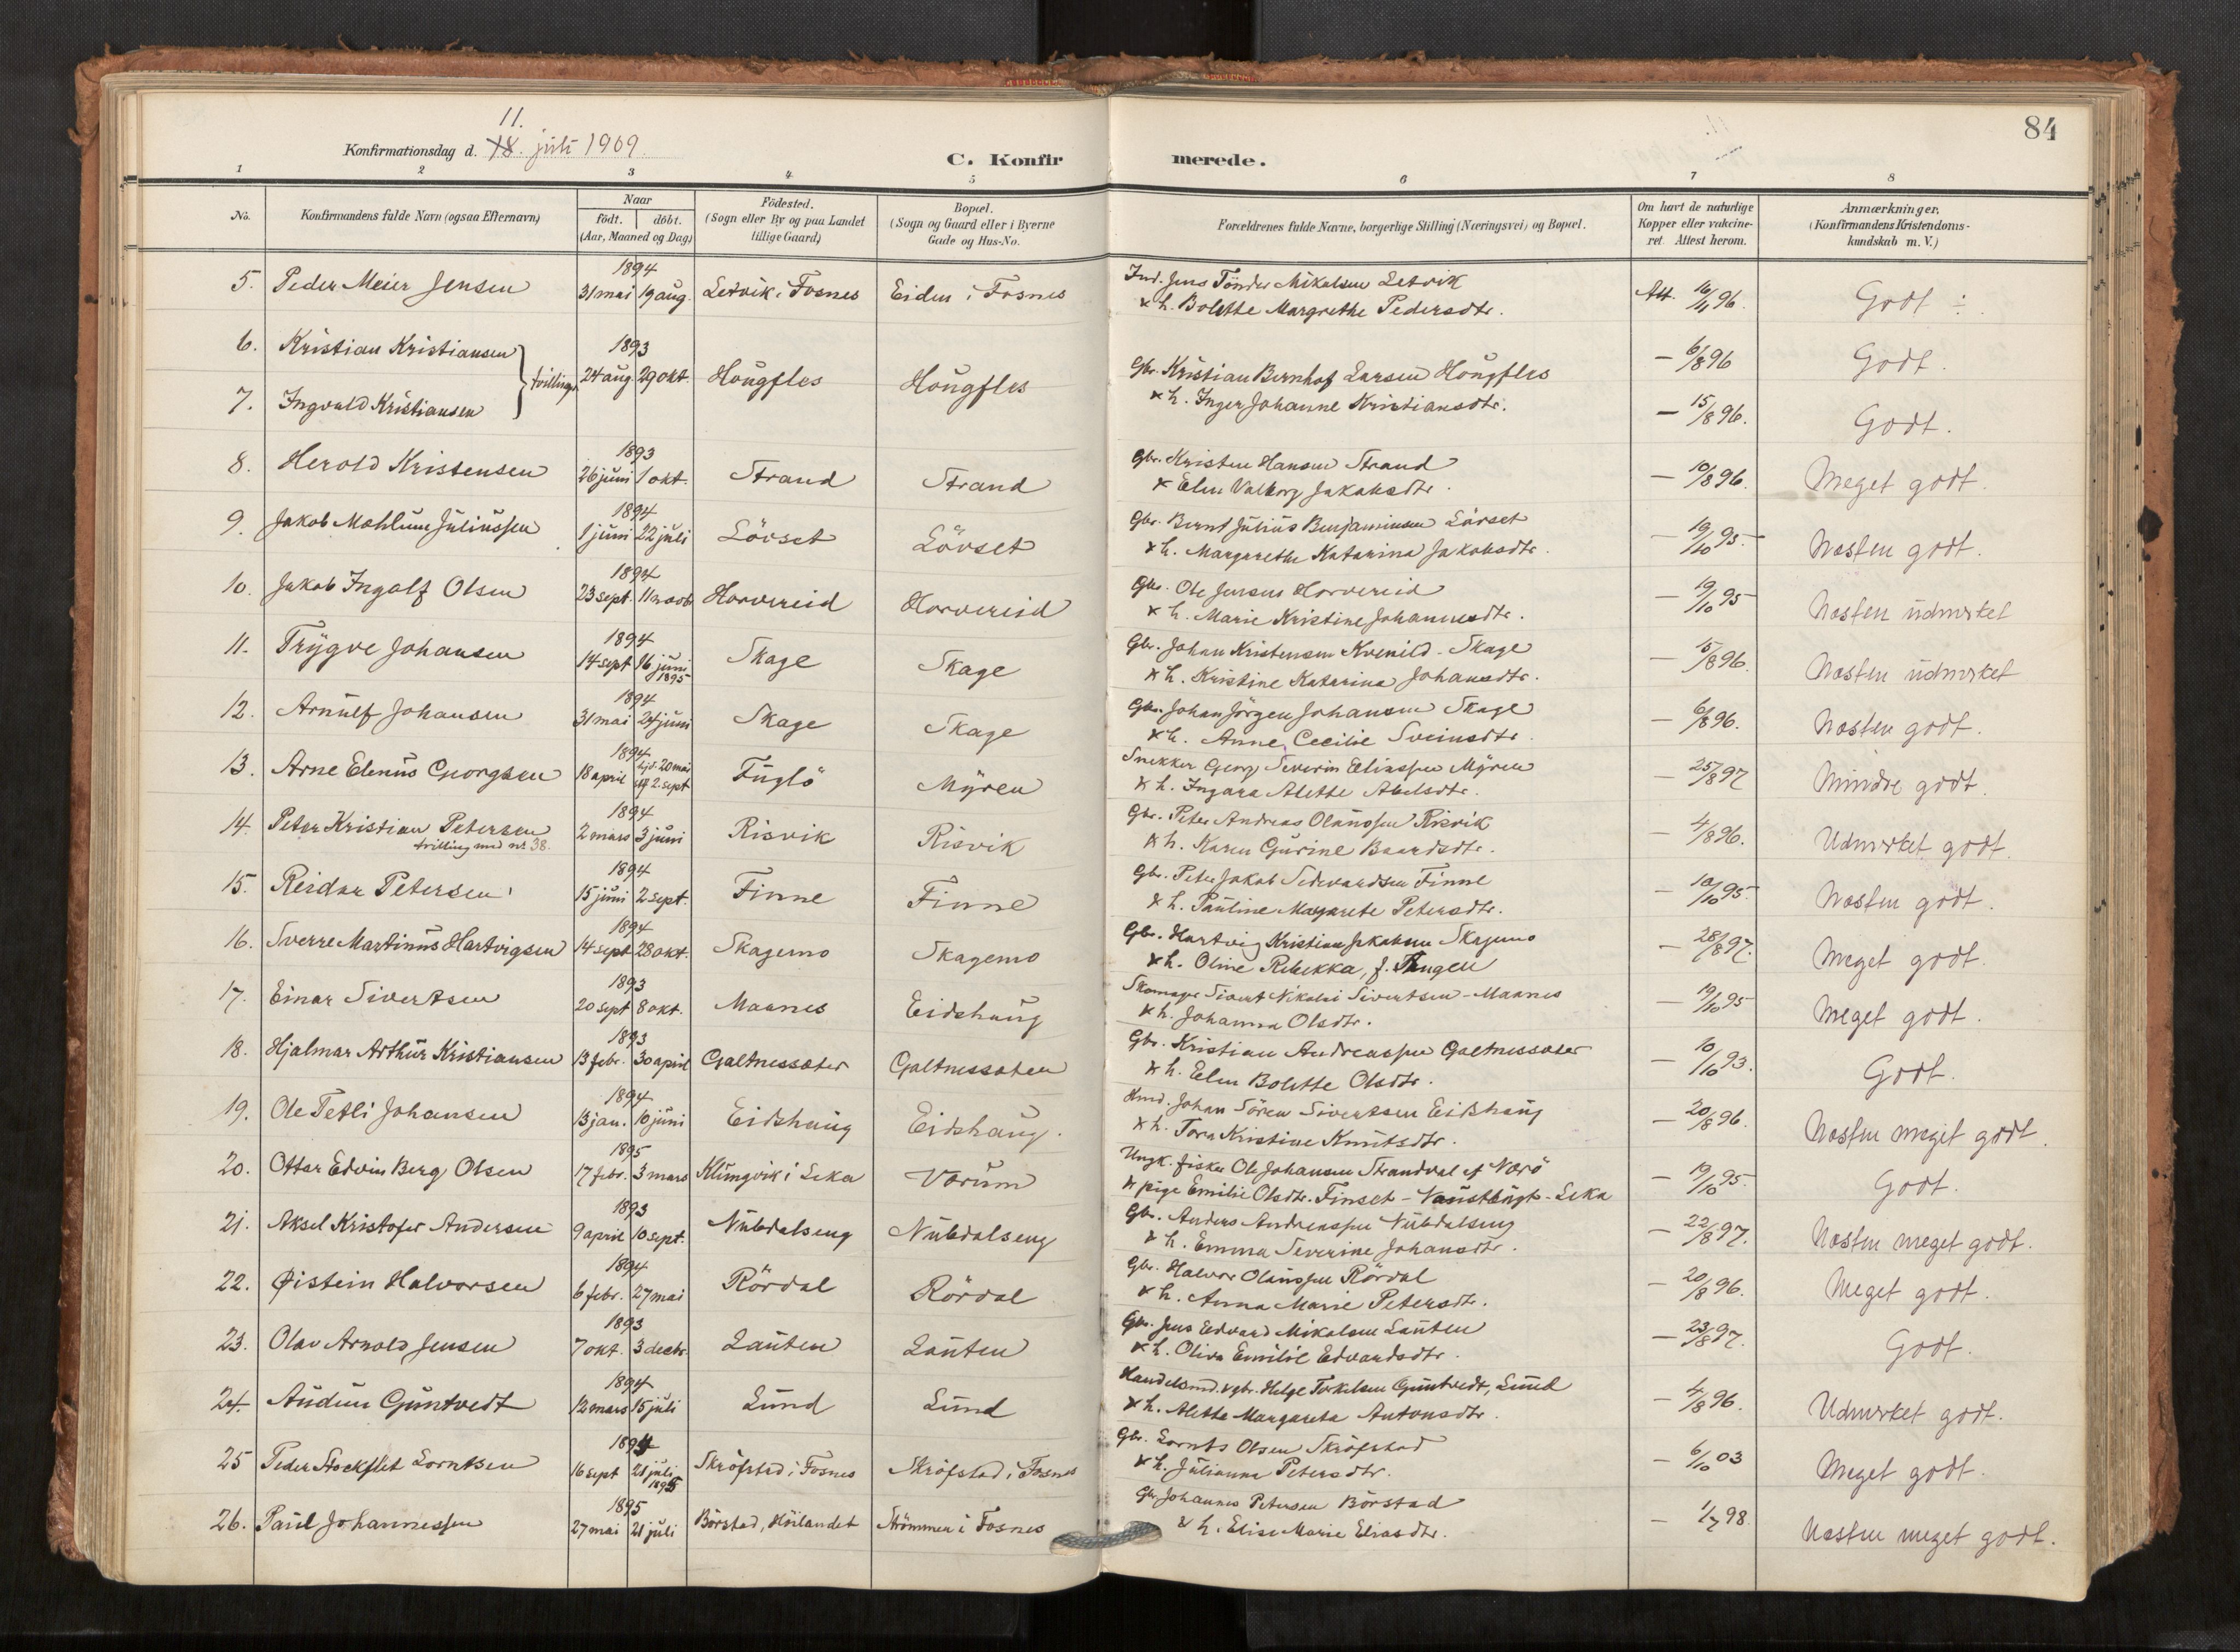 84
11.
Konfirmationsdag d. 18. juli 1909.
C. Konfirmerede.
1 2 3 4 5 6 7 8
No. Konfirmandens fulde Navn (ogsaa Efternavn) Naar födt. döbt. (Aar, Maaned og Dag) Födested. (Sogn eller By og paa Landet tillige Gaard) Bopæl. (Sogn og Gaard eller i Byerne Gade og Hus-No. Forældrenes fulde Navne, borgerlige Stilling (Næringsvei) og Bopæl. Om havt de naturlige Kopper eller vakcineret. Attest herom. Anmærkninger. (Konfirmandens Kristendomskundskab m. V.)
1894
5. Peder Meier Jensen 31 mai 19 aug. Letvik i Fosnes Eiden i Fosnes Ind. Jens Tönder Mikalsen Letvik Att. 16/11 96. Godt ÷
& h. Bolette Margrethe Pedersdtr.
1893
6. Kristian Kristiansen tvillinger 24 aug. 29 okt. Hougfles Hougfles Gbr. Kristian Bernhof Larsen Hougfles — 6/8 96 Godt.
7. Ingvald Kristiansen & h. Inger Johanne Kristiansdtr. — 15/8 96. Godt.
1893
8. Herold Kristensen 26 juni 1 okt. Strand Strand Gbr. Kristen Hansen Strand — 10/8 96. Meget godt.
& Elen Valborg Jakobsdtr.
1894
9. Jakob Mohlum Juliussen 1 juni 22 juli Lövset Lövset Gbr. Bernt Julius Benjaminsen Lövset — 19/10 95. Næsten godt.
& h. Margarethe Katarina Jakobsdtr.
1894
10. Jakob Ingolf Olsen 23 sept. 11 novb. Horvereid Horvereid Gbr. Ole Jensen Horvereid — 19/10 95 Næsten udmerket
& h. Marie Kristine Johannesdtr.
1894
11. Trygve Johansen 14 sept 16 juni 1895 Skage Skage Gbr. Johan Kristensen Kvenild - Skage — 15/8 96. Næsten udmerket
& h. Kristine Katarina Johansdtr.
1894
12. Arnulf Johansen 31 mai 24 juni Skage Skage Gbr. Johan Jörgen Johansen Skage — 6/8 96. Næsten godt.
& h. Anne Cecilie Sveinsdtr.
1894
13. Arne Elenus Georgsen 18 april hjd. 20 mai stf 2. sept Fuglö Myren Snekker Georg Severin Eliassen Myren — 25/8 97 Mindre godt.
& h. Ingara Alette Abelsdtr.
1894
14. Peter Kristian Petersen 2 mars 3 juni Risvik Risvik Gbr. Peter Andreas Olaussen Risvik — 4/8 96. Udmerket godt.
tvilling med nr 38. & h. Karen Gurine Baardsdtr.
1894
15. Reidar Petersen 15 juni 2 sept. Finne Finne Gbr. Peter Jakob Sedevardsen Finne — 10/10 95 Næsten godt.
& h. Pauline Margarete Petersdtr.
1894
16. Sverre Martinus Hartvigsen 14 sept 28 okt. Skagemo Skagemo Gbr. Hartvig Kristian Jakobsen Skagemo — 28/8 97. Meget godt.
& h. Oline Rebekka, f. Haugen
1893
17. Einar Sivertsen 20 sept 8 okt. Maanes Eidshaug Skomager Sivert Nikolai Sivertsen - Maanes — 19/10 95 Meget godt.
& h. Johanna Olsdtr.
1893
18. Hjalmar Arthur Kristiansen 13 febr. 30 april Galtnessæter Galtnessæter Gbr. Kristian Andreassen Galtnessæter — 10/10 93. Godt.
& h. Elen Bolette Olsdtr.
1894
19. Ole Tetli Johansen 13 jan. 10 juni Eidshaug Eidshaug. Hmd. Johan Sören Sivertsen Eidshaug — 20/8 96. Næsten meget godt.
& h. Tora Kristine Knutsdtr.
1895
20. Ottar Edvin Berg Olsen 17 febr. 3 mars Klungvik i Leka Värum Ungk. fisker Ole Johansen Strandval af Nærö — 19/10 95. Godt.
& pige Emilie Olsdtr. Finset - - Leka
1893
21. Aksel Kristofer Andersen 9 april 10 sept. Nubdalseng Nubdalseng Gbr. Anders Andreassen Nubdalseng — 22/8 97. Næsten meget godt.
& h. Emma Severine Johansdtr.
1894
22. Øistein Halvorsen 6 febr. 27 mai Rördal Rördal Gbr. Halvor Olaussen Rördal — 20/8 96. Meget godt.
& h. Anna Marie Petersdtr.
1893
23. Olav Arnold Jensen 7 okt. 3 decbr. Lauten Lauten Gbr. Jens Edvard Mikalsen Lauten — 23/8 97. Godt.
& h. Oliva Emilie Edvardsdtr.
1894
24. Audun Guntvedt 12 mars 15 juli Lund Lund Handelsmd. & gbr. Helge Torkelsen Guntvedt, Lund — 4/8 96. Udmerket godt.
& h. Alette Margareta Antonsdtr.
1894
25 Peder Stockflet Lorntsen 16 sept 21 juli 1895 Skröfstad i Fosnes Skröfstad i Fosnes Gbr. Lornts Olsen Skröfstad — 6/10 03 Meget godt.
& h. Julianna Petersdtr.
1895
26. Paul Johannessen 27 mai 21 juli Börstad, Höilandet Strömmen i Fosnes Gbr Johannes Petersen Börstad — 1/7 98. Næsten meget godt.
& h. Elise Marie Eliasdtr.